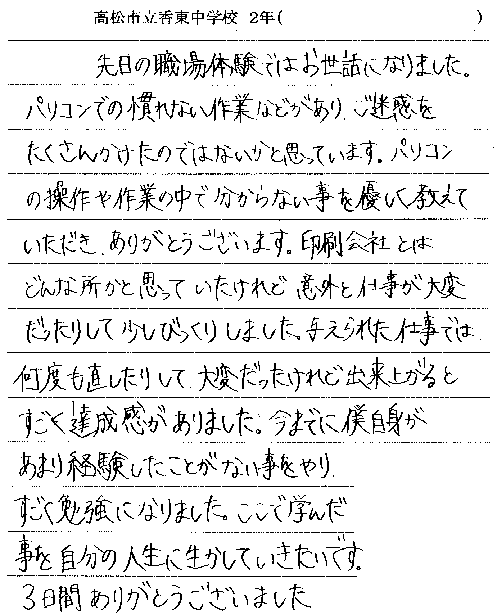 高松市立香東中学校 2年( )
先日の職場体験ではお世話になりました。
パソコンでの慣れない作業などがあり、ご迷惑を
たくさんかけたのではないかと思っています。パソコン
の操作や作業の中で分からない事を優しく教えて
いただき、ありがとうございます。印刷会社とは
どんな所かと思っていたけれど意外と仕事が大変
だったりして少しびっくりしました。与えられた仕事では
何度も直したりして、大変だったけれど出来上がると
すごく達成感がありました。今までに僕自身が
あまり経験したことがない事をやり、
すごく勉強になりました。ここで学んだ
事を自分の人生に生かしていきたいです。
3日間ありがとうございました